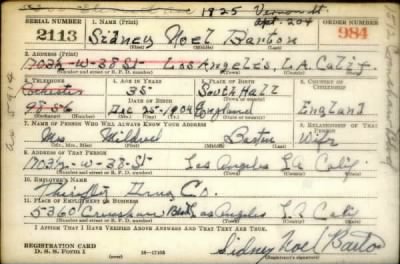 1825 Vermont
Apt. 204
SERIAL NUMBER 1. NAME (Print) ORDER NUMBER
2113 Sidney Noel Barton 984
(First) (Middle) (Last)
2. ADDRESS (Print)
1703½-W-38-St- Los Angeles. L.A. Calif.
(Number and street or R. F. D. number) (Town) (County) (State)
3. TELEPHONE 4. AGE IN YEARS 5. PLACE OF BIRTH 6. COUNTRY OF CITIZENSHIP
35 South Hall
DATE OF BIRTH
9856 Dec. 25-1904 England England
(Exchange) (Number) (Mo.) (Day) (Yr.) (Town or county) (State or country)
7. NAME OF PERSON WHO WILL ALWAYS KNOW YOUR ADDRESS 8. RELATIONSHIP OF THAT PERSON
Mrs Mildred Barton Wife
(Mr., Mrs., Miss) (First) (Middle) (Last)
9. ADDRESS OF THAT PERSON
1703½-W-38-St- Los Angeles LA Calif.
(Number and street or R. F. D. number) (Town) (County) (State)
10. EMPLOYER'S NAME
Thrifty Drug Co.
11. PLACE OF EMPLOYMENT OR BUSINESS
5360 Crenshaw Blvd Los Angeles LA Calif.
(Number and street or R. F. D. number) (Town) (County) (State)
I AFFIRM THAT I HAVE VERIFIED ABOVE ANSWERS AND THAT THEY ARE TRUE.
REGISTRATION CARD
D. S. S. FORM 1 (over) 16-17105
Sidney Noel Barton